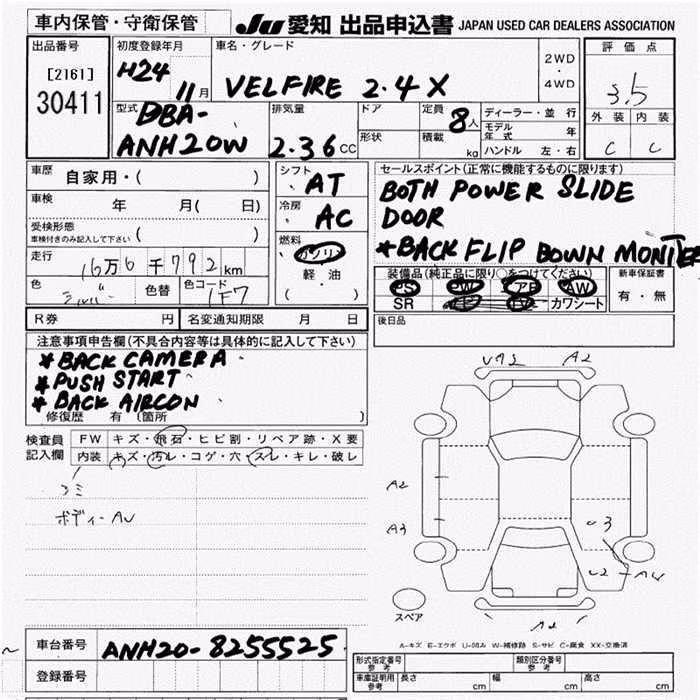 車内保管・守衛保管
JU 愛知 出品申込書 JAPAN USED CAR DEALERS ASSOCIATION
出品番号
[2161]
30411
初度登録年月
H24 11月
車名・グレード
VELFIRE 2.4 X
2WD
・
4WD
評価点
3.5
外装 内装
C C
型式
DBA-
ANH20W
排気量
2.36cc
ドア
形状
定員
8人
積載
kg
ディーラー・並行
モデル
年式 年
ハンドル 左・右
車歴
自家用・( )
車検
年 月( 日)
受検形態
車検付きのみ記入して下さい ( )
走行
16万6千792km
色
シルバー
色替
色コード
1F7
シフト
AT
冷房
AC
燃料
ガソリン
軽・油
( )
セールスポイント(正常に機能するものに限ります)
BOTH POWER SLIDE
DOOR
*BACK FLIP DOWN MONITER
装備品(純正品に限り○をつけてください)
PS PW エアB AW
SR ナビ TV カワシート
新車保証書
有・無
後日品
R券 円
名変通知期限 月 日
注意事項申告欄(不具合内容等は具体的に記入して下さい)
*BACK CAMERA
*PUSH START
*BACK AIRCON
修復歴 有 (箇所 )
検査員
記入欄
FW キズ・飛石・ヒビ割・リペア跡・X要
内装 キズ・汚レ・コゲ・穴・スレ・キレ・破レ
コミ
ボディーAU
A2
A2
A3
スペア
A-キズ E-エクボ U-凹み W-補修跡 S-サビ C-腐食 XX-交換済
車台番号
ANH20-8255525
登録番号
形式指定番号
参考
類別区分番号
参考
車庫証明用
参考
長さ cm 幅 cm 高さ cm